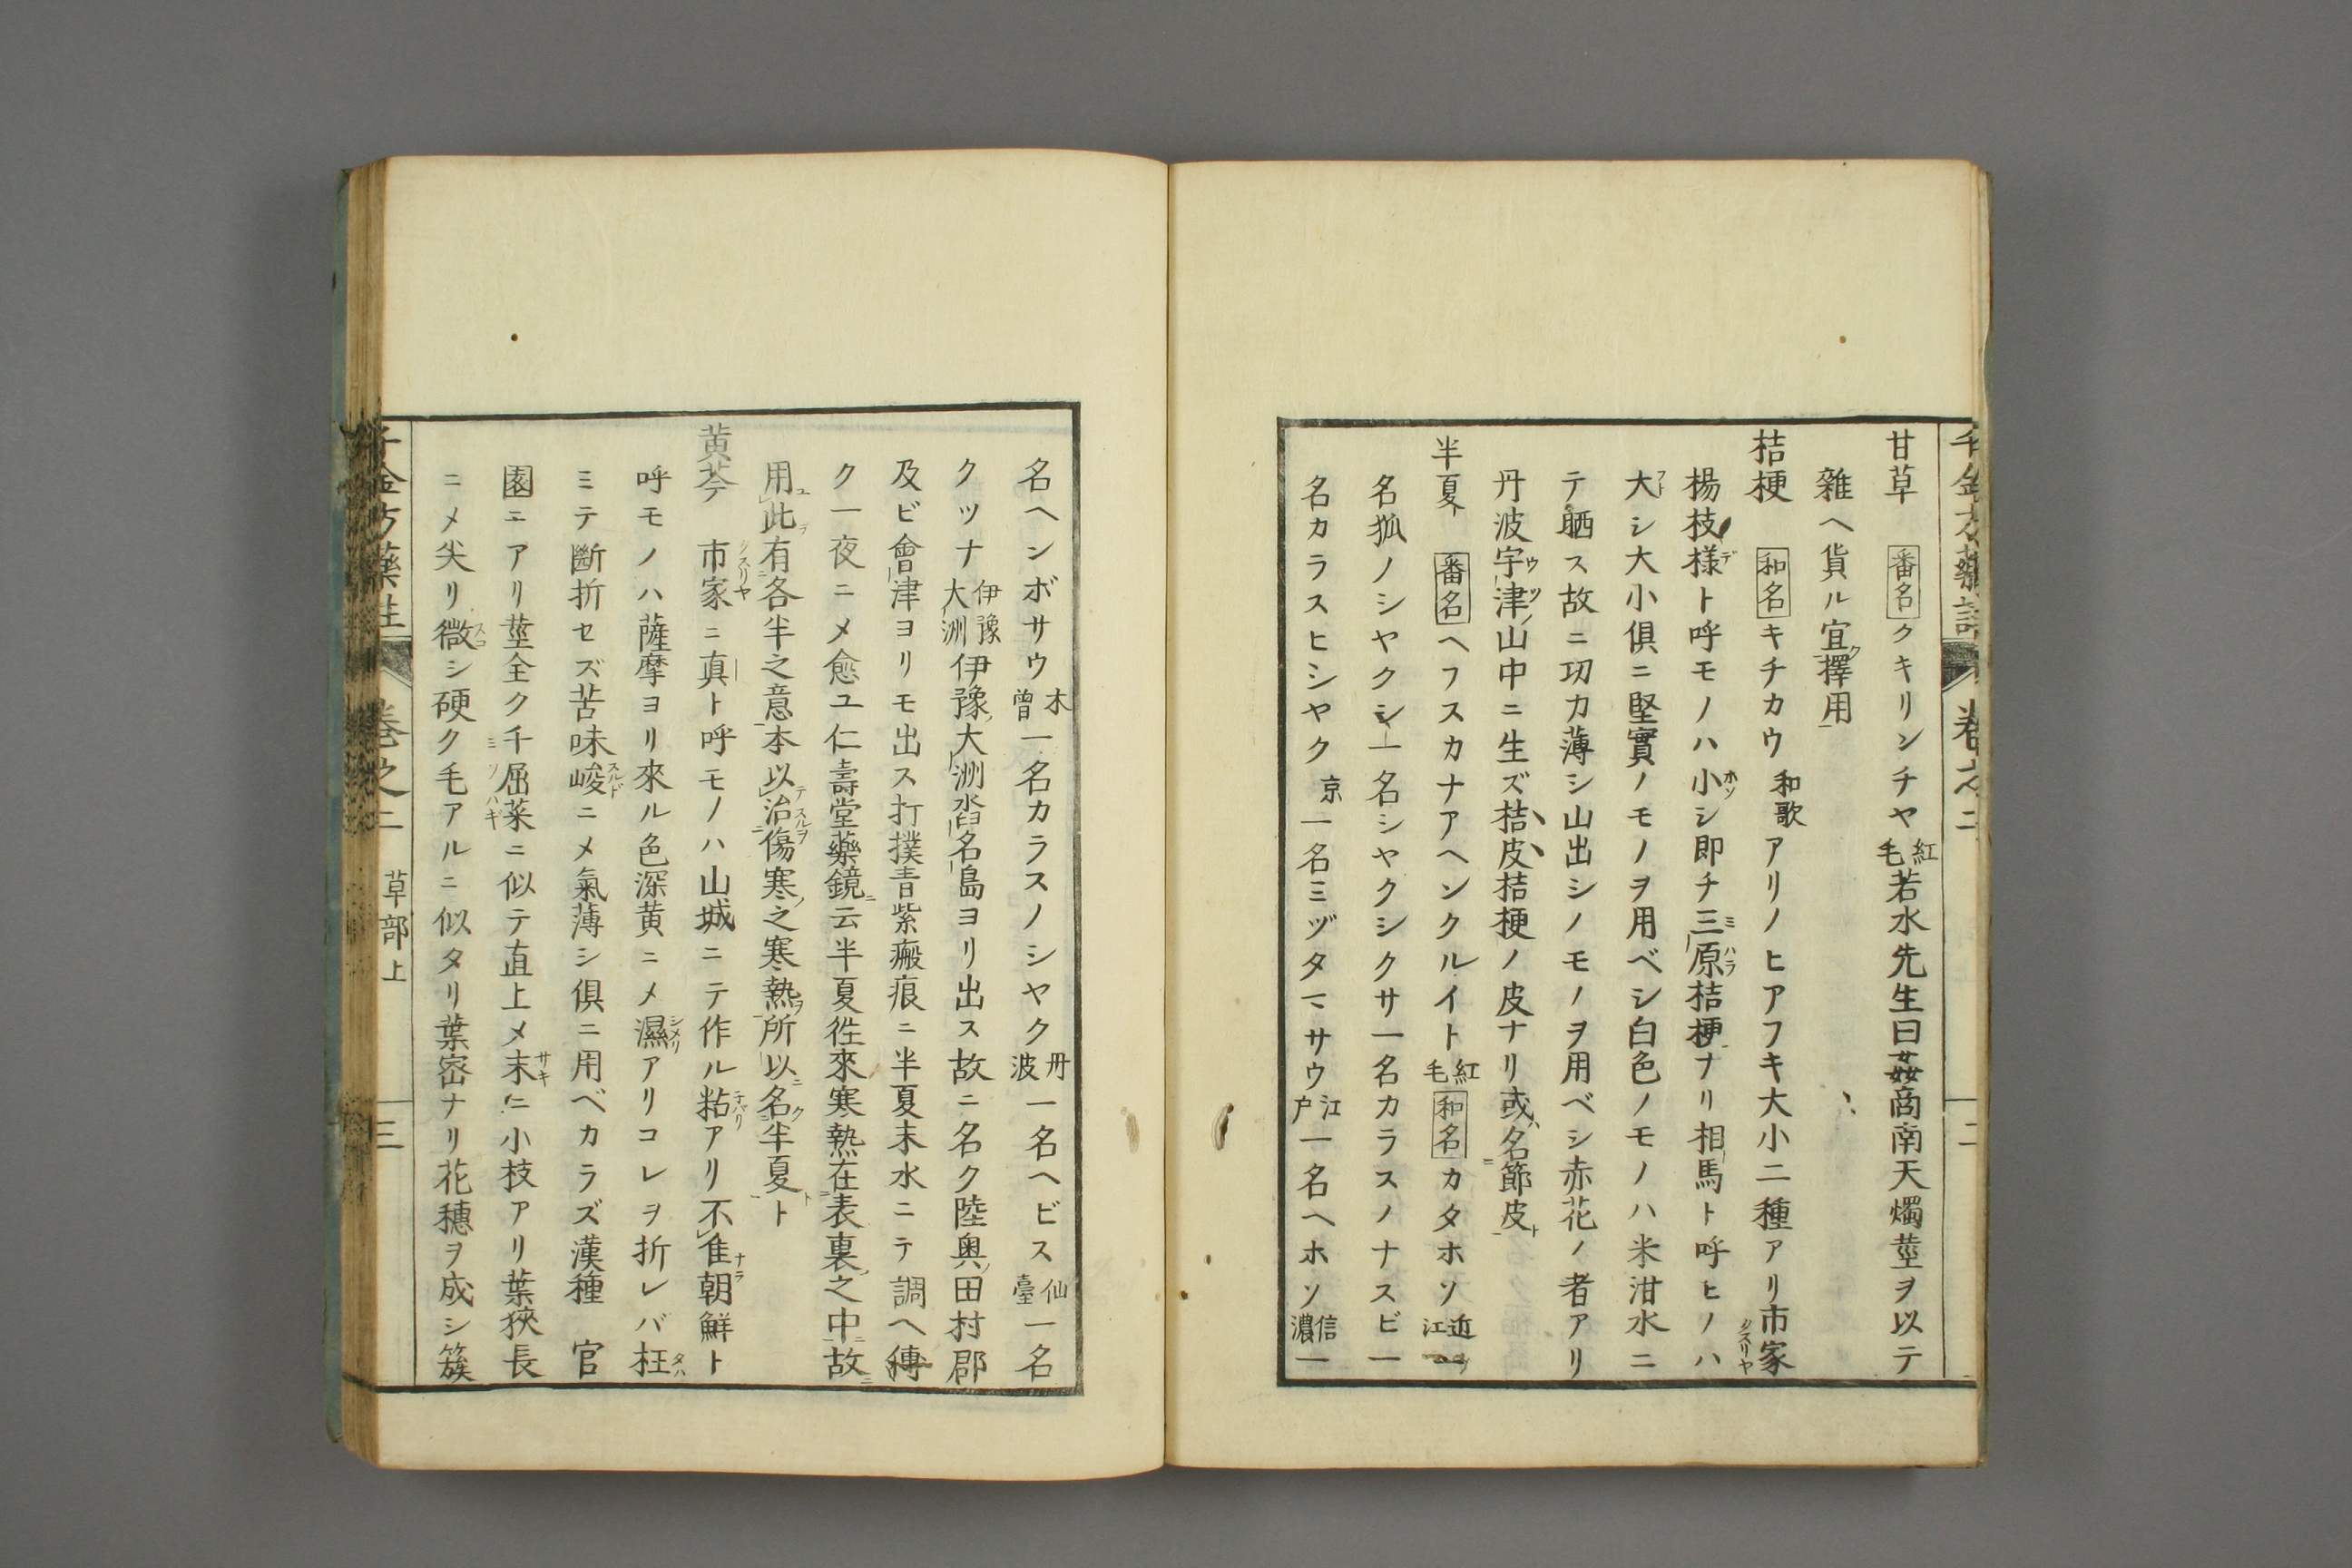 甘草 番名 クキリンチヤ 紅毛 若水先生曰姦商南天燭莖ヲ以テ
雜ヘ貨ル宜ク擇用
桔梗 和名 キチカウ 和歌 アリノヒアフキ大小二種アリ市家クスリヤ
楊枝様デト呼モノハ小ホソシ即チ三原ミハラ桔梗ナリ相馬ト呼ヒノハ
大フトシ大小俱ニ堅實ノモノヲ用ベシ白色ノモノハ米泔水ニ
テ晒ス故ニ功力薄シ山出シノモノヲ用ベシ赤花ノ者アリ
丹波宇津ウツノ山中ニ生ズ桔皮桔梗ノ皮ナリ或ハ名節皮ト
半夏 番名 ヘフスカナアヘンクルイト 紅毛 和名 カタホソ 近江 一
名狐ノシヤクシ一名シヤクシクサ一名カラスノナスビ一
名カラスヒシヤク 京 一名ミヅタマサウ 江戸 一名ヘホソ 信濃 一
千金方藥 卷之二 二
名ヘンボサウ 木曽 一名カラスノシヤク 丹波 一名ヘビス 仙臺 一名
クツナ 伊豫大洲 伊豫ノ大洲沓名島ヨリ出ス故ニ名ク陸奥ノ田村郡
及ビ會津ヨリモ出ス打撲青紫瘢痕ニ半夏末水ニテ調ヘ傅
ク一夜ニメ愈ユ仁壽堂藥鏡ニ云半夏徃來寒熱在表裏之中故
用此有各半之意本以治傷寒之寒熱所以名半夏ト
黄芩 市家クスリヤニ真ト呼モノハ山城ニテ作ル粘子バリアリ不隹ナラ朝鮮ト
呼モノハ薩摩ヨリ來ル色深黄ニメ濕シメリアリコレヲ折レバ枉タハ
ミテ斷折セズ苦味峻スルドニメ氣薄シ俱ニ用ベカラズ漢種 官
園ニアリ莖全ク千屈菜ミソハギニ似テ直上メ末サキニ小枝アリ葉狹長
ニメ尖リ微スコシ硬ク毛アルニ似タリ葉密ナリ花穗ヲ成シ簇
千金方藥 卷之二 草部上 三